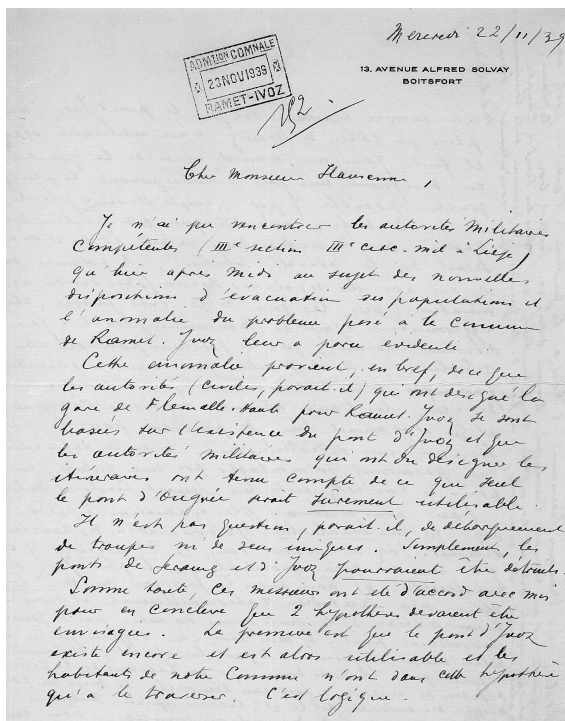 Mercredi 22/11/39
13, AVENUE ALFRED SOLVAY
BOITSFORT
ADMTION COMNALE
23 NOV 1939
RAMET-IVOZ
Cher Monsieur Hausenne,
Je n'ai pu rencontrer les autorités militaires
compétentes (IIIe section IIIe circ. mil à Liège)
qu'hier après midi au sujet des nouvelles
dispositions d'évacuation des populations et
l'anomalie du problème posé à la Commune
de Ramet-Ivoz leur a paru évidente.
Cette anomalie provient, en bref, de ce que
les autorités (civiles, parait-il) qui ont désigné la
gare de Flémalle-Haute pour Ramet-Ivoz se sont
basées sur l'existence du pont d'Ivoz et que
les autorités militaires qui ont dû désigner les
itinéraires ont tenu compte de ce que seul
le pont d'Ougrée serait sûrement utilisable.
Il n'est pas question, parait-il, de débarquement
de troupes ni de
Simplement, les
ponts de Seraing et d'Ivoz pourraient être détruits.
Somme toute, ces messieurs ont été d'accord avec moi
pour en conclure que 2 hypothèses devaient être
envisagées. La première est que le pont d'Ivoz
existe encore et est alors utilisable et les
habitants de notre Commune n'ont dans cette hypothèse
qu'à le traverser. C'est logique.